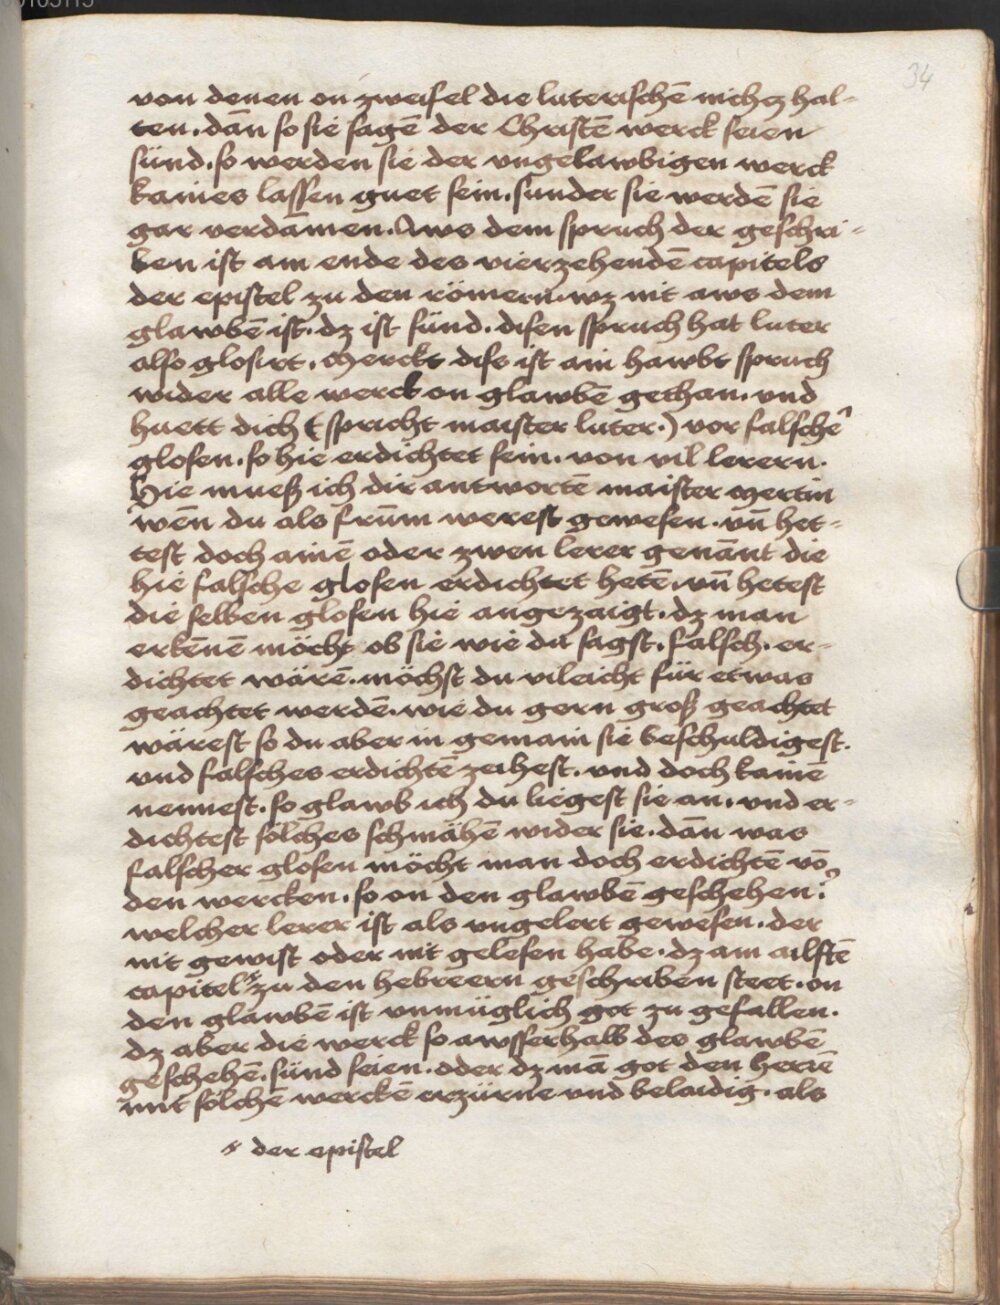 34
von denen on zweifel die luterischē nichcz hal-
ten. dan̄ so sie sagē der Christē werck seien
sünd. so werden sie der vngelawbigen werck
kaines lassen guet sein. sunder sie werdē sie
gar verdāmen. Aws dem spruch der geschri-
ben ist am ende des vierzehendē capitels
der epistel zu den römern. wz nit aws dem
glawbē ist. dz ist sünd. disen spruch hat luter
also glosirt. Merckt diss ist ain hawbt spruch
wider alle werck on glawbē gethan. vnd
huett dich (spricht maister luter.) vor falschē
glosen. so hie erdichtet sein. von vil lerern.
Hie muess ich dir antwortē maister Mertin
wen̄ du als frūm werest gewesen. vn̄ het-
test doch ainē oder zwen lerer genan̄t die
hie falsche glosen erdichtet hetē. vn̄ hetest
die selben glosen hie angezaigt. dz man
erken̄ē möcht ob sie wie du sagst. falsch. er-
dichtet wärē. möchst du vileicht für etwas
geachtet werdē. wie du gern gross geachtet
wärest so du aber in gemain sie beschuldigest.
vnd falsches erdichtē zeihest. vnd doch kainē
nennest. so glawb ich du liegest sie an. vnd er-
dichtest sölches schmähē wider sie. dan̄ was
falscher glosen möcht man doch erdichtē vō
den wercken. so on den glawbē geschehen?
welcher lerer ist als vngelert gewesen. der
nit gewist oder nit gelesen habe. dz am ailftē
capitel zu den hebreern geschriben steet. on
den glawbē ist vnmüglich got zu gefallen.
dz aber die werck so awsserhalb des glawbē
geschehē. sünd seien. oder dz mā got den herrē
mit sölchē werckē erzürne vnd belaidig. als
der epistel